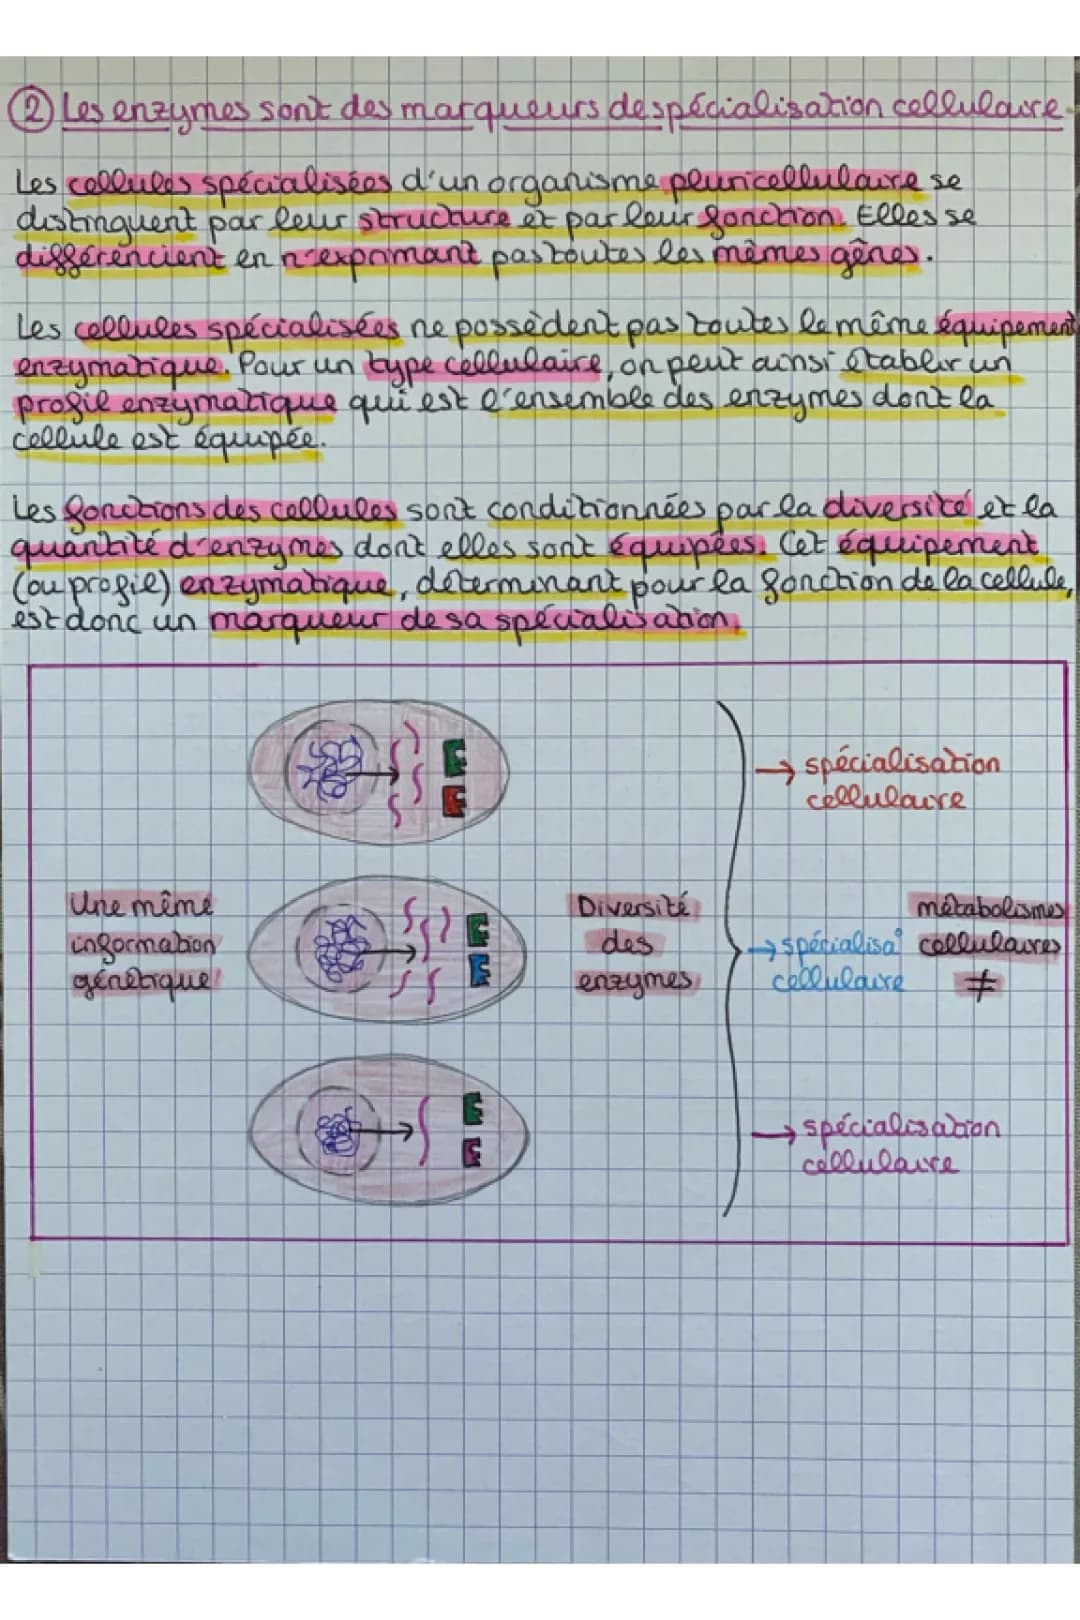 ② Les enzymes sont des marqueurs de spécialisation cellulaire
Les cellules spécialisées d'un organisme pluricellulaire se
distinguent par leur structure et par leur fonction. Elles se
différencient en n'exprimant pas toutes les mêmes gênes.
Les cellules spécialisées ne possèdent pas toutes le même équipement
enzymatique. Pour un type cellulaire, on peut ainsi établir un
profil enzymatique qui est l'ensemble des enzymes dont la
cellule est équipée.
Les fonctions des cellules sont conditionnées par la diversité et la
quantité d'enzymes dont elles sont équipées. Cet équipement
(ou profil) enzymatique, déterminant pour la fonction de la cellule,
est donc un marqueur de sa spécialisation.
→ spécialisation
cellulaire
Une même
information
génétique
Diversité
des
enzymes
→ spécialisa°
cellulaire
métabolismes
cellulaires
≠
→ spécialisation
cellulaire